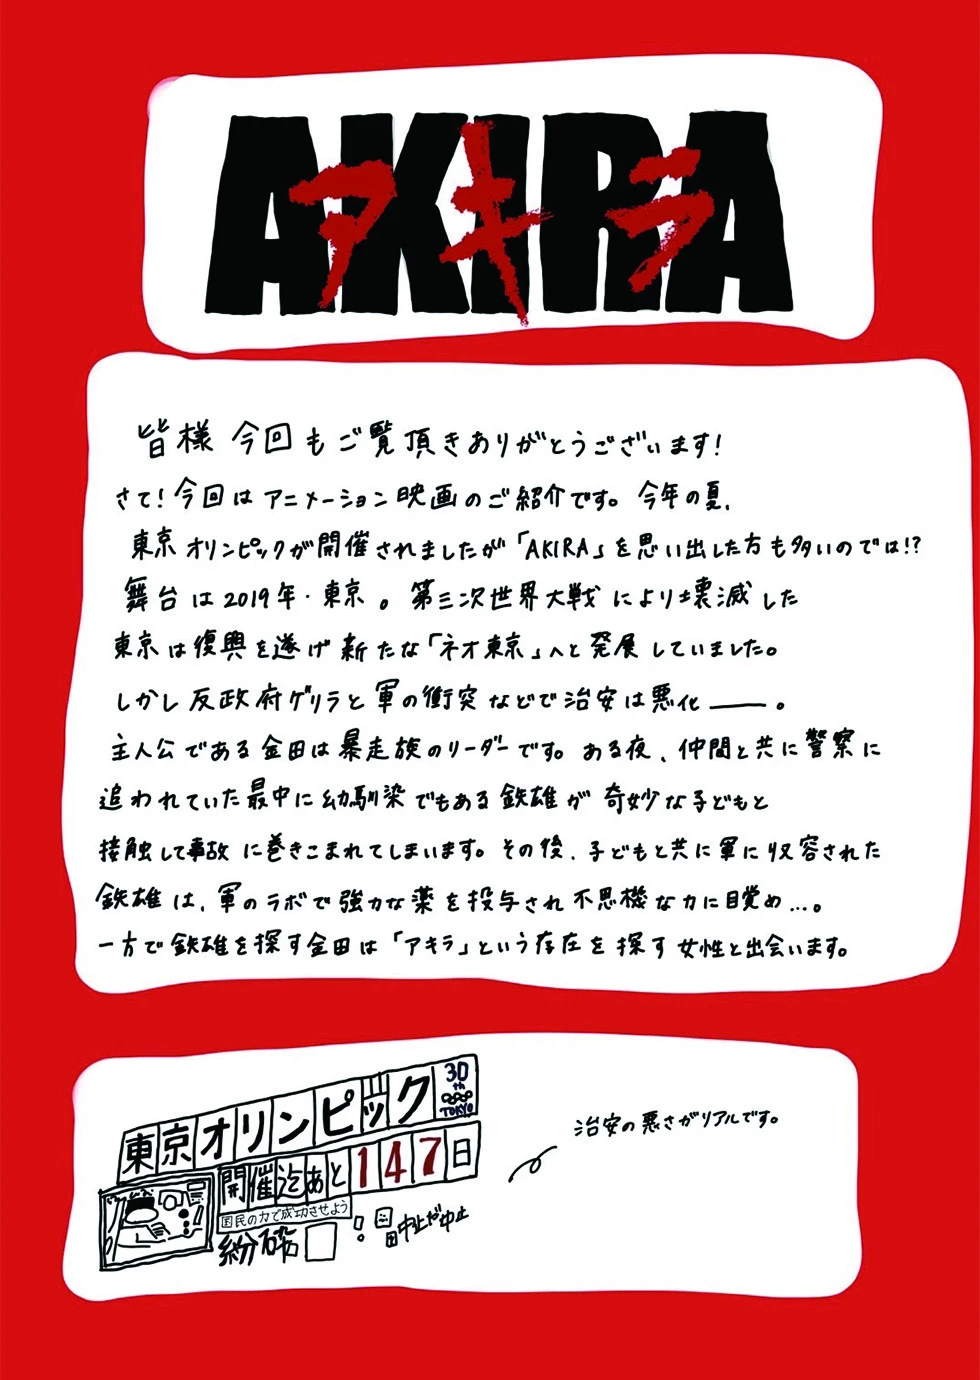 AKIRA
アキラ
皆様 今回もご覧頂きありがとうございます!
さて!今回はアニメーション映画のご紹介です。今年の夏、
東京オリンピックが開催されましたが「AKIRA」を思い出した方も多いのでは!?
舞台は2019年・東京。第三次世界大戦により壊滅した
東京は復興を遂げ新たな「ネオ東京」へと発展していました。
しかし反政府ゲリラと軍の衝突などで治安は悪化――。
主人公である金田は暴走族のリーダーです。ある夜、仲間と共に警察に
追われていた最中に幼馴染でもある鉄雄が奇妙な子どもと
接触して事故に巻きこまれてしまいます。その後、子どもと共に軍に収容された
鉄雄は、軍のラボで強力な薬を投与され不思機な力に目覚め…。
一方で鉄雄を探す金田は「アキラ」という存在を探す女性と出会います。
東京オリンピック
30th
TOKYO
開催迄あと147日
国民の力で成功させよう
紛砕
中止だ中止
治安の悪さがリアルです。